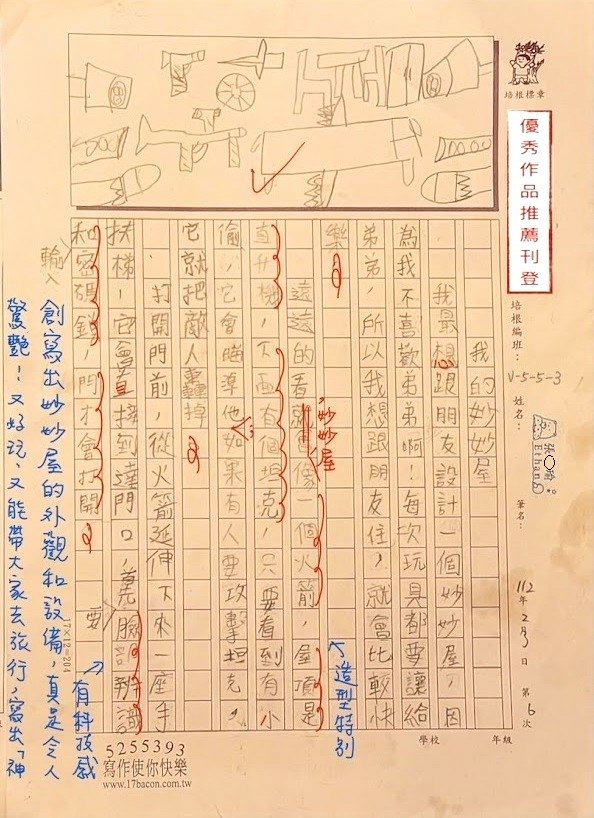 培根標章
優秀作品推薦刊登
培根編班：
V-5-5-3
姓名：
Ethan
筆名：
112年2月3日 第6次
學校 年級
我的妙妙屋
我最想跟朋友設計一個妙妙屋，因
為我不喜歡弟弟啊！每次玩具都要讓給
弟弟，所以我想跟朋友住，就會比較快
樂。
遠遠的看就像一個火箭，屋頂是
妙妙屋
造型特別
直升機，下面有個坦克，只要看到有小
偷，它會瞄準他如果有人要攻擊坦克，
它就把敵人轟掉。
打開門前，從火箭延伸下來一座手
扶梯，它會直接到達門口，要臉部辨識
和密碼鎖，門才會打開。
輸入
要
有科技感
創寫出妙妙屋的外觀和設備，真是令人
驚艷！又好玩、又能帶大家去旅行，寫出「神
17×12=204
5255393
寫作使你快樂
www.17bacon.com.tw